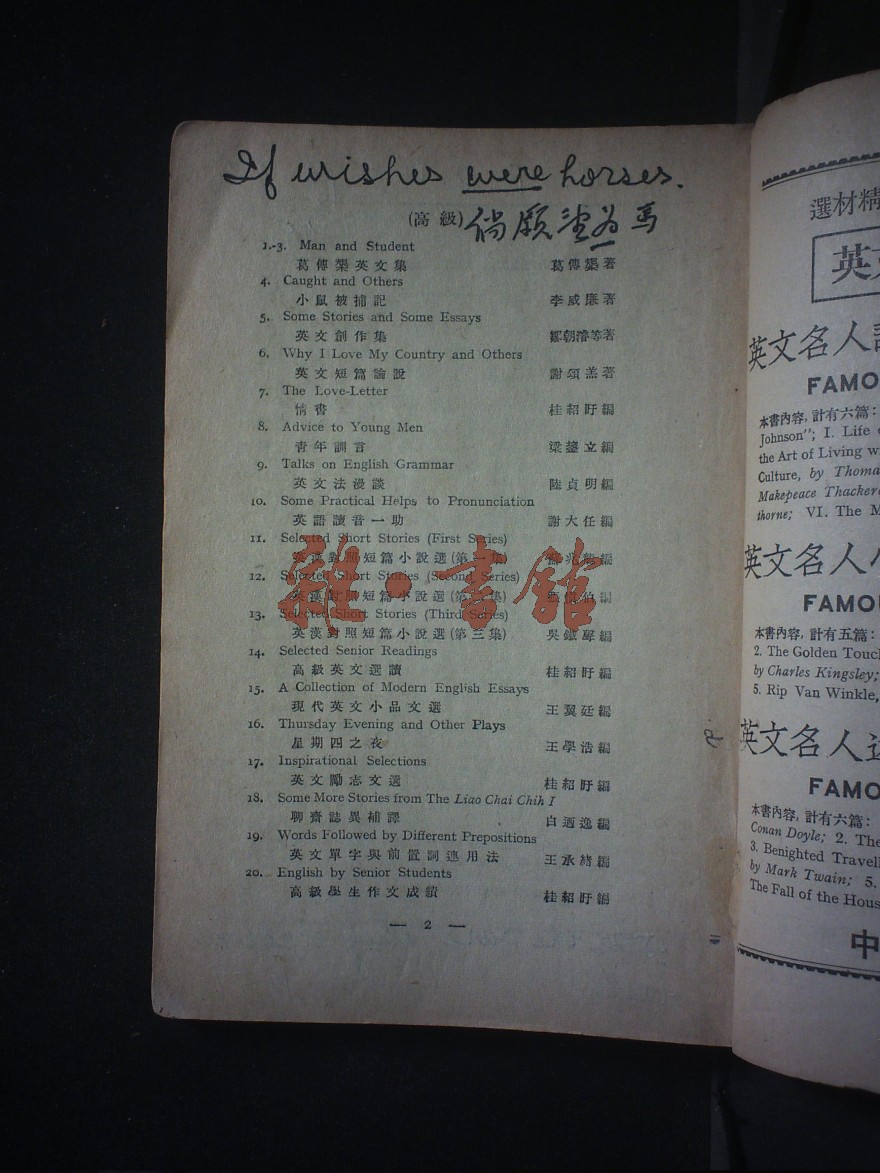 If wishes were horses.
(高級) 倘願望為馬
1.-3. Man and Student
葛傳槼英文集 葛傳槼著
4. Caught and Others
小鼠被捕記 李威廉著
5. Some Stories and Some Essays
英文創作集 鄒朝濬等著
6. Why I Love My Country and Others
英文短篇論說 謝頌羔著
7. The Love-Letter
情書 桂紹盱編
8. Advice to Young Men
青年訓言 梁鋆立編
9. Talks on English Grammar
英文法漫談 陸貞明編
10. Some Practical Helps to Pronunciation
英語讀音一助 謝大任編
11. Selected Short Stories (First Series)
英漢對照短篇小說選(第一集) 兆龍編
12. Selected Short Stories (Second Series)
英漢對照短篇小說選(第二集) 伯編
13. Selected Short Stories (Third Series)
英漢對照短篇小說選(第三集) 吳鐵聲編
14. Selected Senior Readings
高級英文選讀 桂紹盱編
15. A Collection of Modern English Essays
現代英文小品文選 王翼廷編
16. Thursday Evening and Other Plays
星期四之夜 王學浩編
17. Inspirational Selections
英文勵志文選 桂紹盱編
18. Some More Stories from The Liao Chai Chih I
聊齋誌異補譯 白逎逸編
19. Words Followed by Different Prepositions
英文單字與前置詞連用法 王承緒編
20. English by Senior Students
高級學生作文成績 桂紹盱編
— 2 —
雜·書館
選材精
英文
英文名人
FAMO
本書內容,計有六篇:
Johnson"; I. Life
the Art of Living w
Culture, by Thoma
Makepeace Thacker
thorne; VI. The M
英文名人
FAMOU
本書內容,計有五篇:
2. The Golden Touch
by Charles Kingsley;
5. Rip Van Winkle,
英文名人
FAMO
本書內容,計有六篇:
Conan Doyle; 2. The
3. Benighted Travell
by Mark Twain; 5.
The Fall of the Hous
中